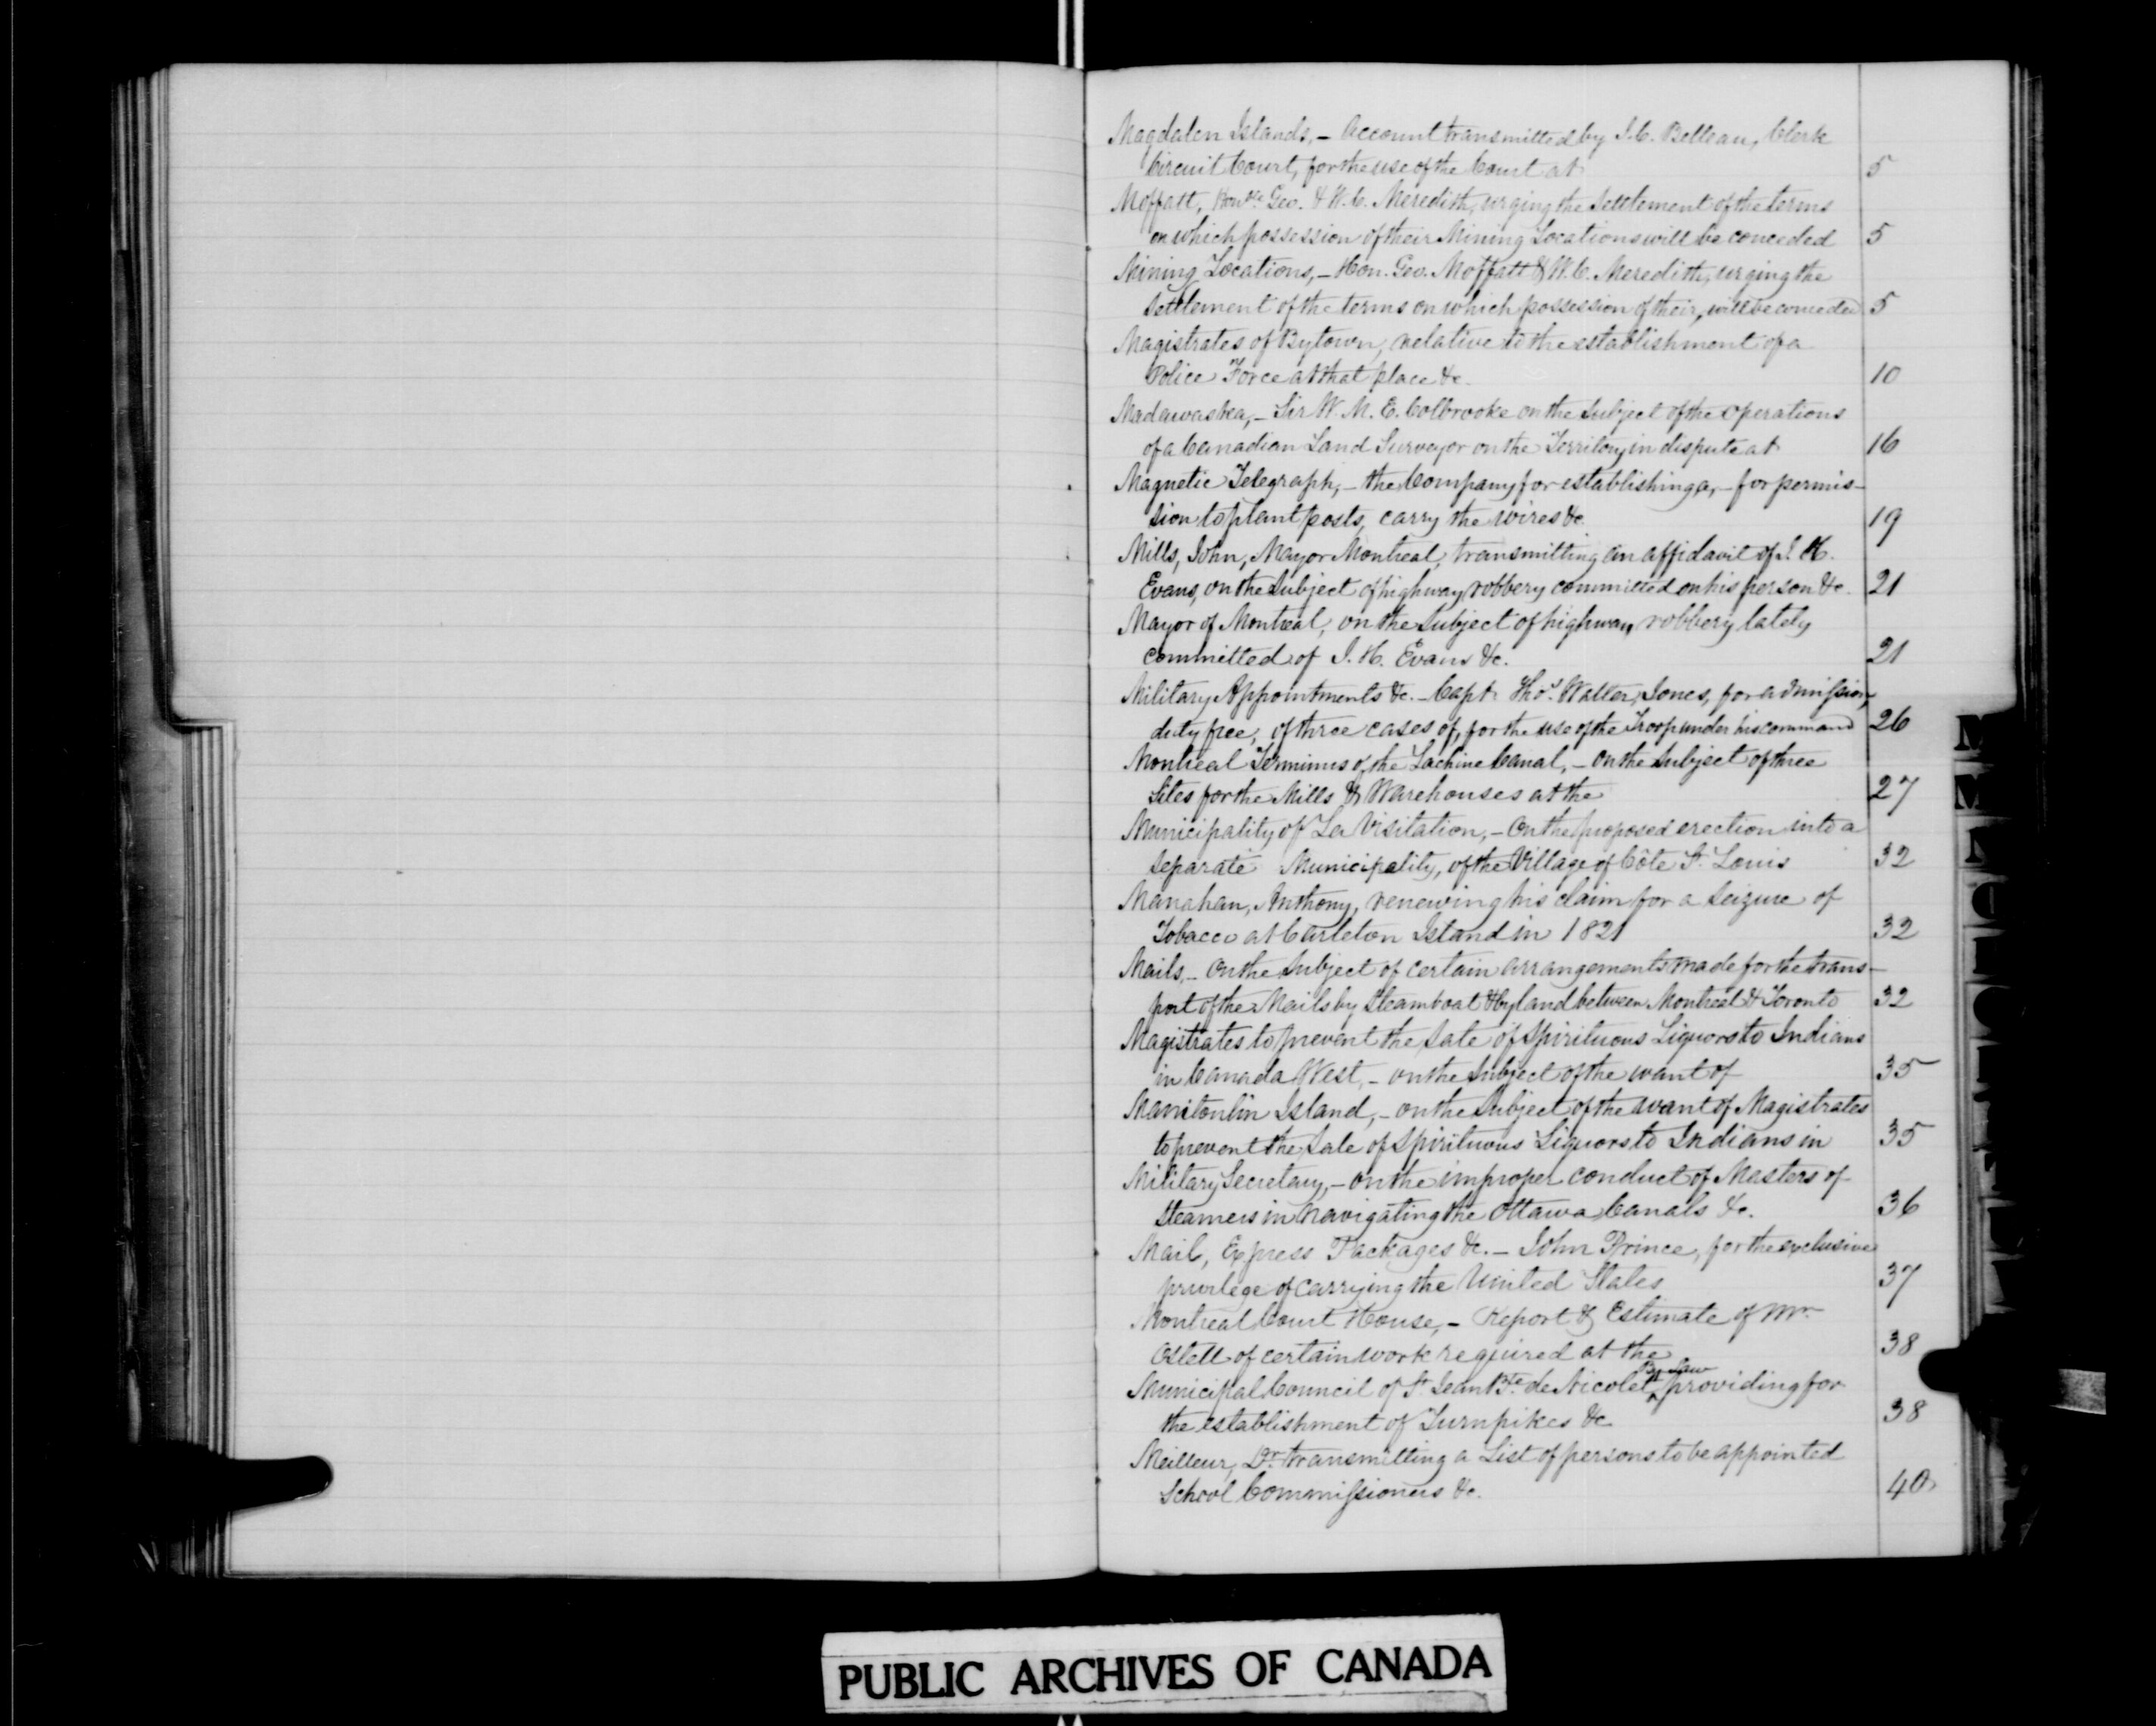 Magdalen Islands, - Account transmitted by J. C. Belleau, Clerk
Circuit Court, for the use of the Court at 5
Moffatt, Honble Geo. & W. C. Meredith, urging the Settlement of the terms
on which possession of their Mining Locations will be conceded 5
Mining Locations, - Hon. Geo. Moffatt & W. C. Meredith, urging the
Settlement of the terms on which possession of their, will be conceded 5
Magistrates of Bytown, relative to the establishment of a
Police Force at that place &c. 10
Madawaska, - Sir W. M. E. Colbrooke on the Subject of the operations
of a Canadian Land Surveyor on the Territory in dispute at 16
Magnetic Telegraph, - the Company for establishing a, - for permis-
sion to plant posts, carry the wires &c 19
Mills, John, Mayor Montreal, transmitting an affidavit of J. H.
Evans, on the Subject of highway robbery committed on his person &c. 21
Mayor of Montreal, on the Subject of highway robbery lately
committed of J. H. Evans &c. 21
Military Appointments &c. - Capt. Thos. Walter Jones, for admission,
duty free, of three cases of, for the use of the Troop under his command 26
Montreal Terminus of the Lachine Canal, - on the Subject of three
Sites for the Mills & Warehouses at the 27
Municipality of La Visitation, - On the proposed erection into a
Separate Municipality, of the Village of Côte St. Louis 32
Manahan, Anthony, renewing his claim for a Seizure of
Tobacco at Carleton Island in 1821 32
Mails, - On the Subject of certain arrangements made for the trans-
port of the Mails by Steamboat & by land between Montreal & Toronto 32
Magistrates to prevent the Sale of Spirituous Liquors to Indians
in Canada West, - on the Subject of the want of 35
Manitoulin Island, - on the Subject of the want of Magistrates
to prevent the Sale of Spirituous Liquors to Indians in 35
Military Secretary, - on the improper conduct of Masters of
Steamers in navigating the Ottawa Canals &c. 36
Mail, Express Packages &c. - John Prince, for the exclusive
privilege of carrying the United States 37
Montreal Court House, - Report & Estimate of Mr.
Ostell of certain work required at the 38
Municipal Council of St. Jean Bte. de Nicolet, By-Law providing for
the establishment of Turnpikes &c 38
Meilleur, Dr. transmitting a List of persons to be appointed
School Commissioners &c. 40
PUBLIC ARCHIVES OF CANADA